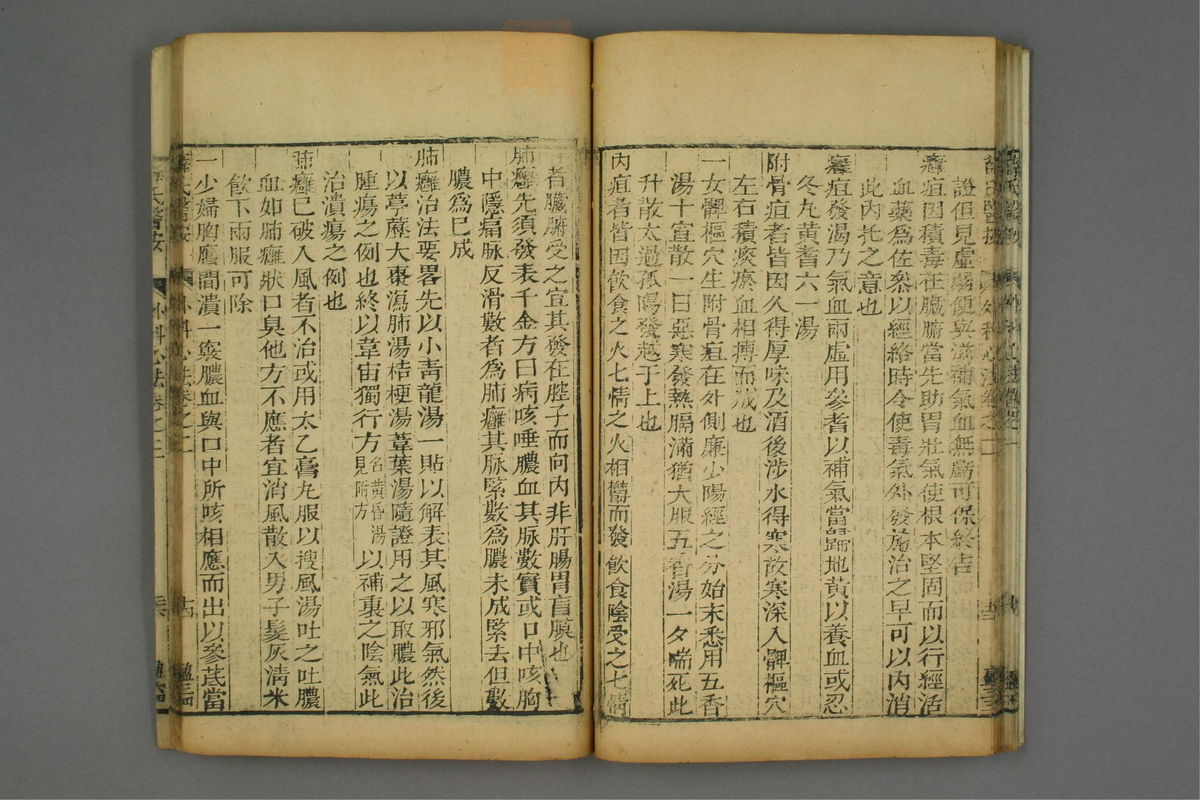 薛氏醫按
外科心法卷之二
證但見虛弱便與滋補氣血無虧可保終吉
癰疽因積毒在臟腑當先助胃壯氣使根本堅固而以行經活
血藥為佐叅以經絡時令使毒氣外發施治之早可以內消
此內托之意也
癰疽發渴乃氣血兩虛用參耆以補氣當歸地黃以養血或忍
冬丸黃耆六一湯
附骨疽者皆因久得厚味及酒後涉水得寒故寒深入髀樞穴
左右積痰瘀血相搏而成也
一女髀樞穴生附骨疽在外側廉少陽經之分始末悉用五香
湯十宣散一日惡寒發熱膈滿猶大服五香湯一夕喘死此
升散太過孤陽發越于上也
內疽者皆因飲食之火七情之火相鬱而發飲食陰受之七情
者臟腑受之宜其發在腔子而向內非肝腸胃盲膜也
肺癰先須發表千金方曰病咳唾膿血其脉數實或口中咳胸
中隱痛脉反滑數者為肺癰其脉緊數為膿未成緊去但數
膿為已成
肺癰治法要畧先以小青龍湯一貼以解表其風寒邪氣然後
以葶藶大棗瀉肺湯桔梗湯葦葉湯隨證用之以取膿此治
腫瘍之例也終以韋宙獨行方名黃昏湯見附方以補裏之陰氣此
治潰瘍之例也
肺癰已破入風者不治或用太乙膏丸服以搜風湯吐之吐膿
血如肺癰狀口臭他方不應者宜消風散入男子髮灰清米
飲下兩服可除
一少婦胸膺間潰一竅膿血與口中所咳相應而出以參芪當
薛氏醫按
外科心法卷之二